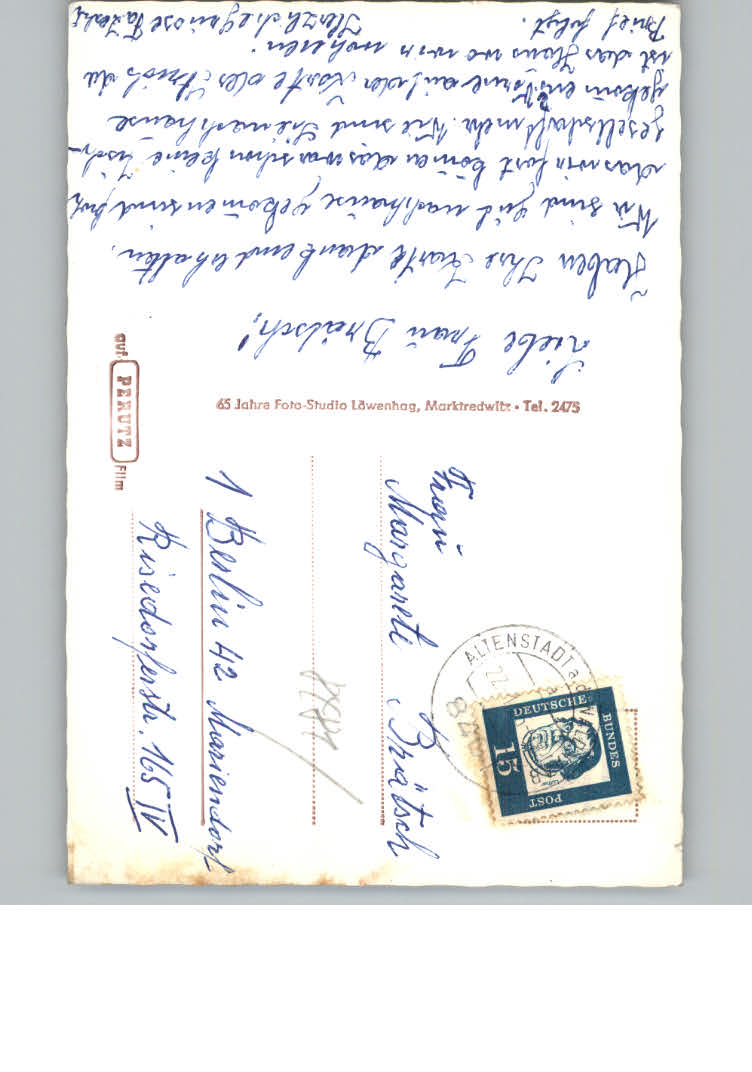 Liebe Frau Brätsch!
Haben Ihre Karte dankend erhalten.
Wir sind gut nachhause gekommen sind froh
das wir fort kamen das war schon keine
gesellschaft mehr. Wie sind Sie nachhause
gekomen. Vorne auf der Karte das
ist das Haus wo wir wohnen.
Brief folgt.
Herzliche Grüsse
65 Jahre Foto-Studio Löwenhag, Marktredwitz • Tel. 2475
auf PERUTZ Film
Frau
Margarete Brätsch
1 Berlin 42 Mariendorf
Risedorferstr. 165 IV
ALTENSTADT a.d.
DEUTSCHE
BUNDES
POST
15